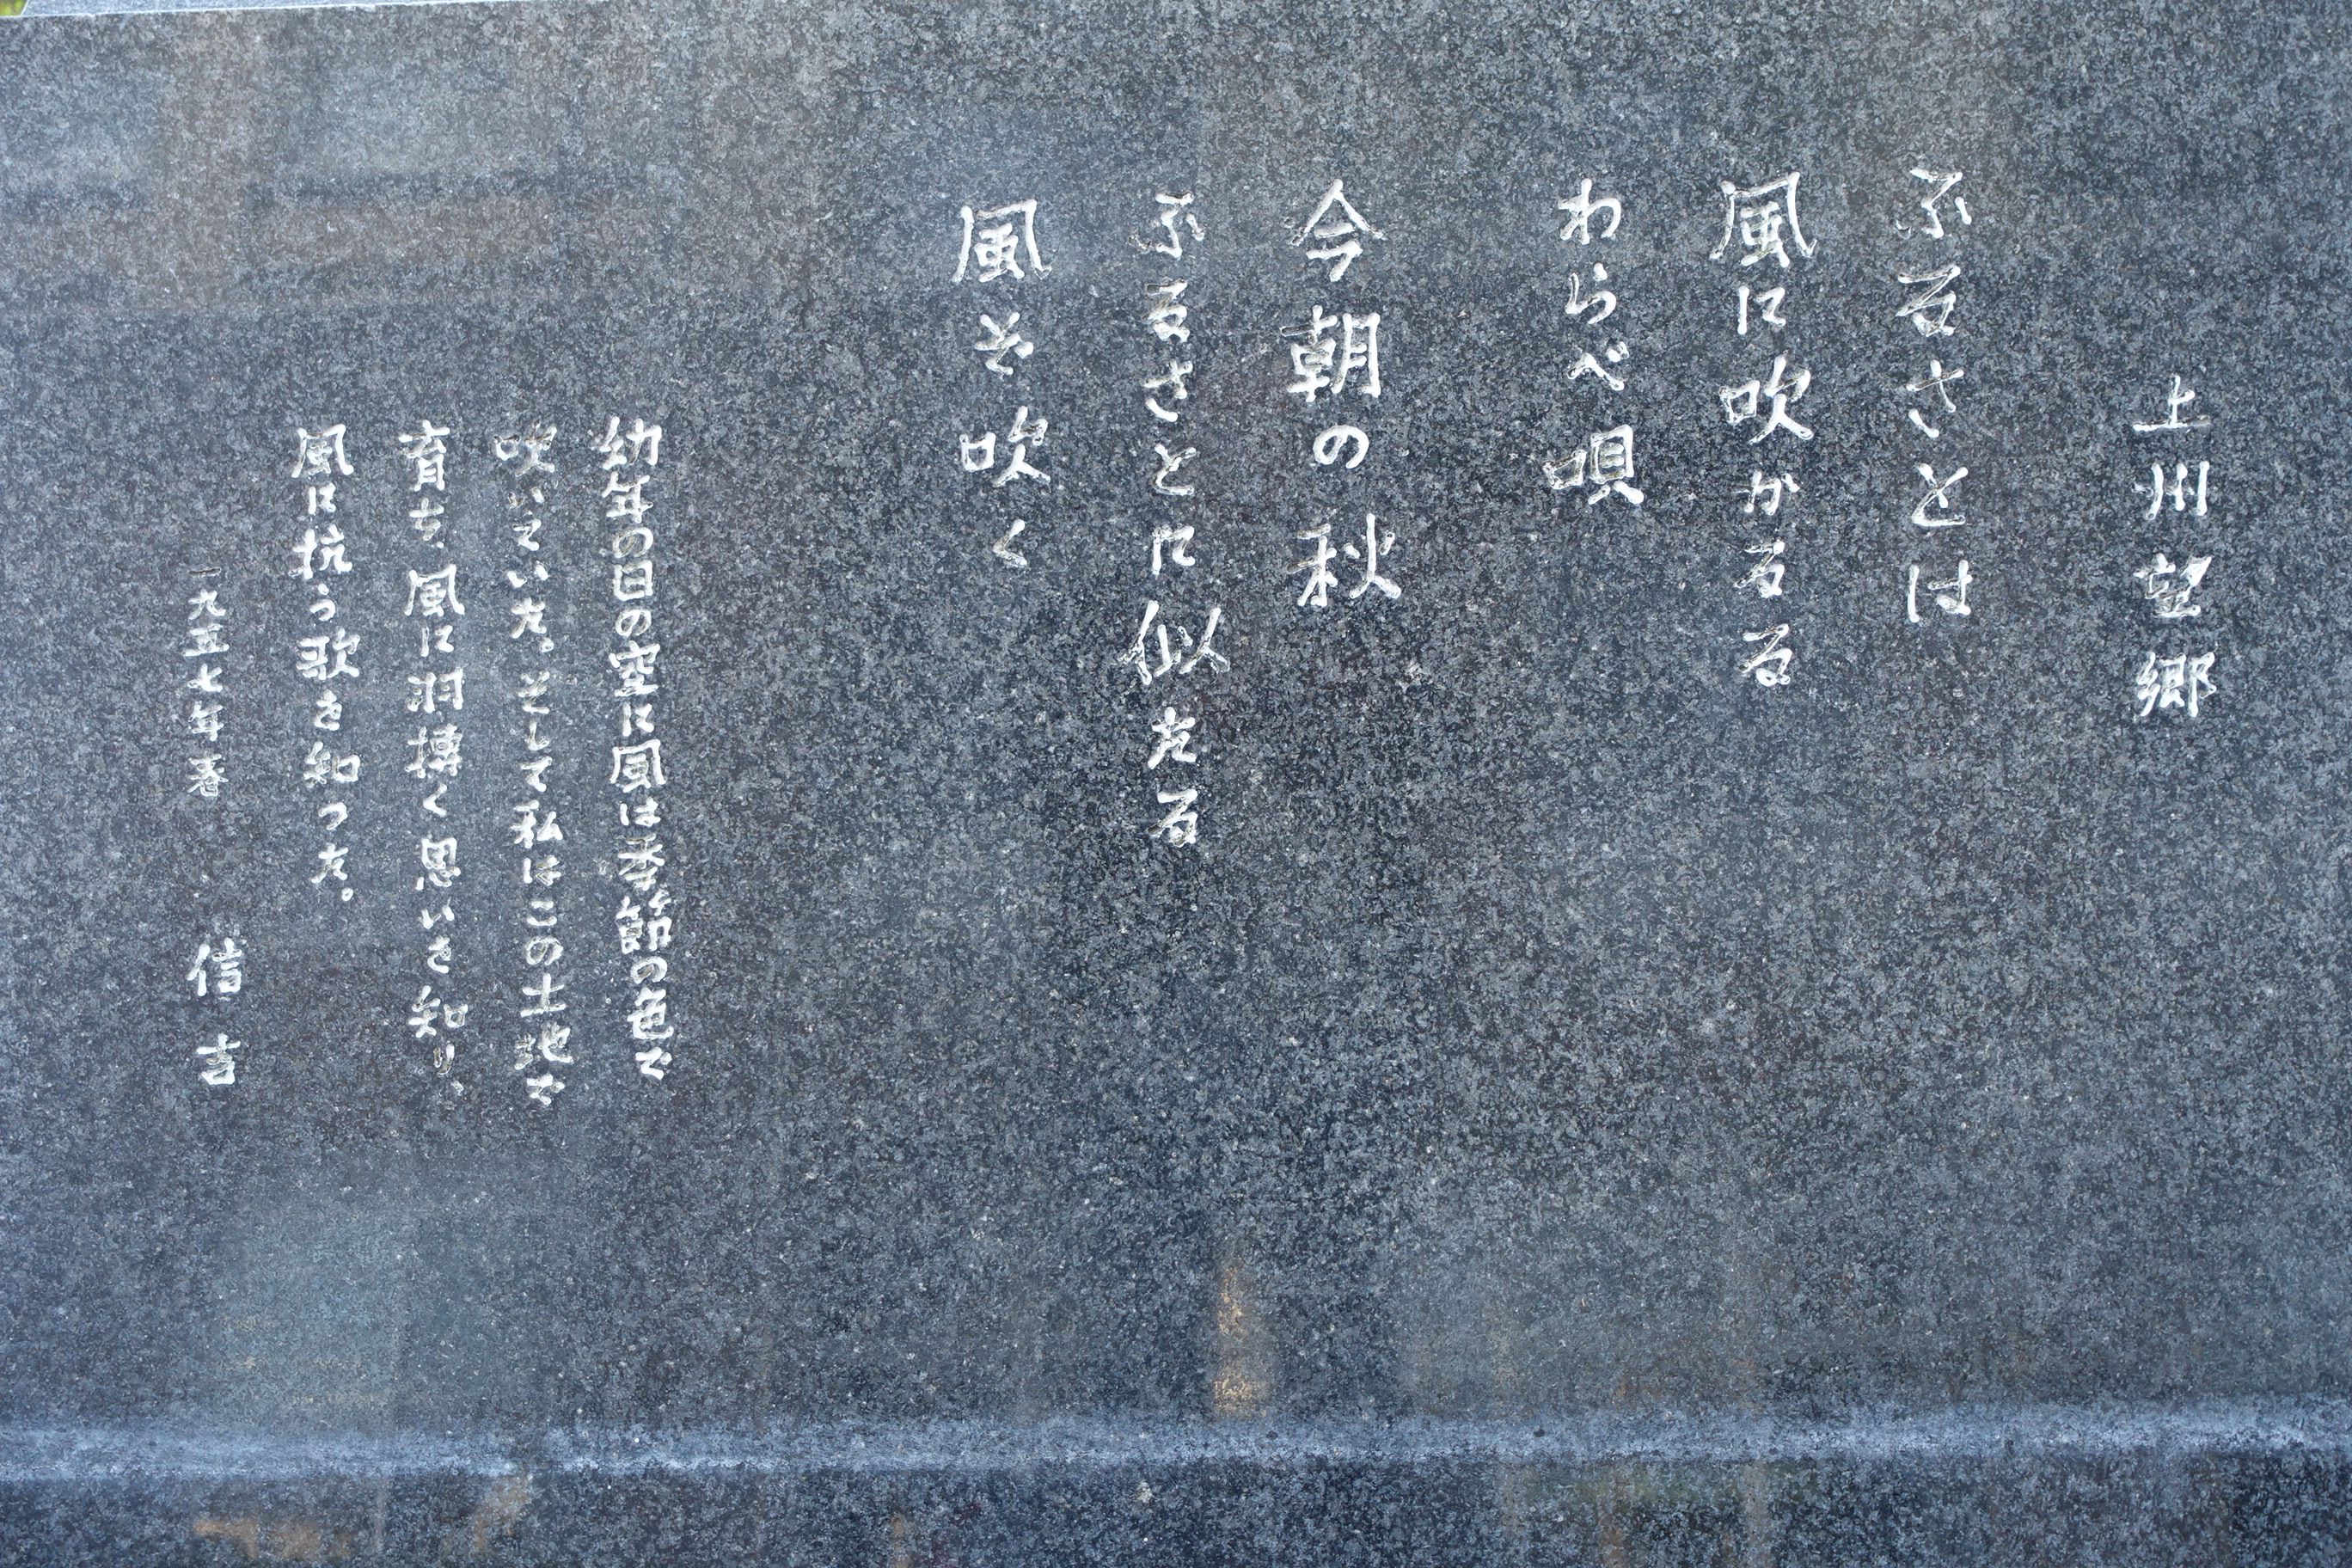 上州望郷
ふるさとは
風に吹かるる
わらべ唄
今朝の秋
ふるさとに似たる
風そ吹く
幼年の日の空に風は季節の色で
吹いていた。そして私はこの土地で
育ち、風に羽搏く思いを知り、
風に抗う歌を知った。
一九五七年春 信吉